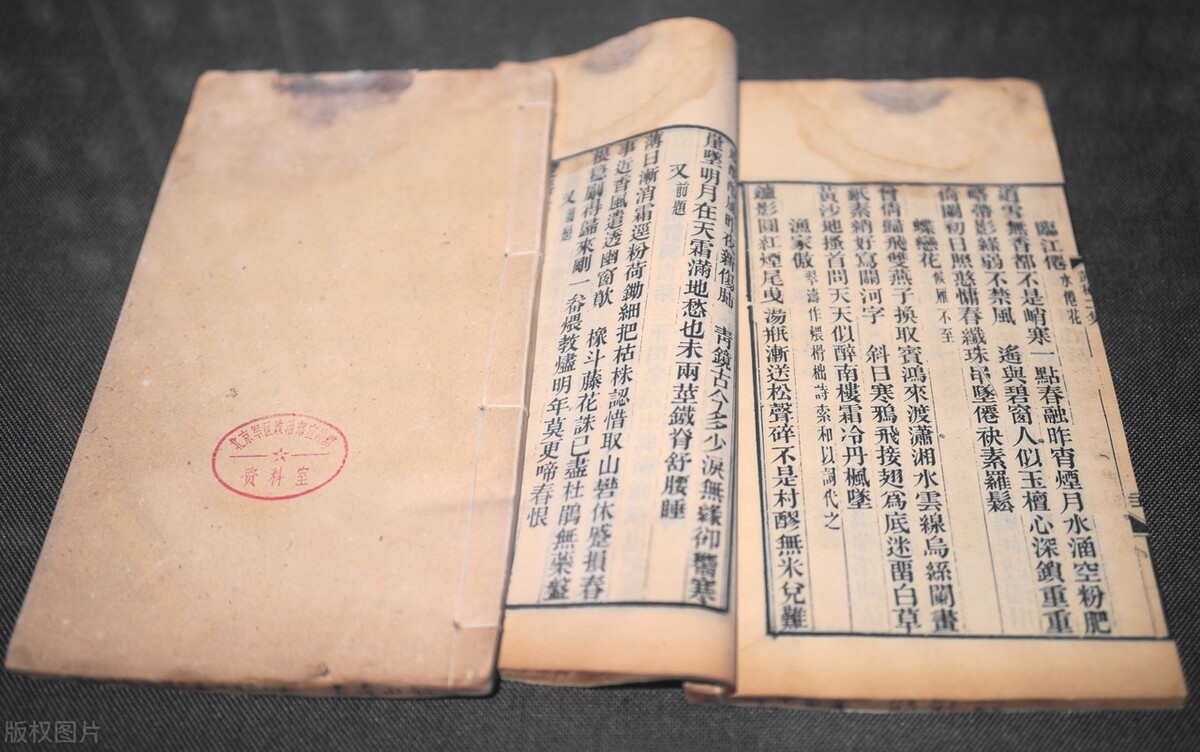 臨江僊 水僊花
道雪無香都不是峭寒一點春融昨宵煙月水涵空粉肥
略帶影綠弱不禁風 遙與碧窗人似玉檀心深鎖重重
倚闌初日照憨慵春纖珠串墜僊袂素羅鬆
蝶戀花 候雁不至
曾倩歸飛雙燕子換取賓鴻來渡瀟湘水雲線烏絲闌畫
紙素綃好寫關河字 斜日寒鴉飛接翅為底迷留白草
黃沙地搔首問天天似醉南樓霜冷丹楓墜
漁家傲 翠濤作榾柮詩索和以詞代之
鑪影圓紅煙尾曳湯瓶漸送松聲碎不是村醪無米兌難
青鏡古今多少淚無緣卻
崖墜明月在天霜滿地愁也未兩莖鐵脊舒腰睡
又 前題
薄日漸消霜逕粉荷鋤細把枯株認惜取山礬休蹙損春
事近香風遣透幽窗 橡斗藤花誅已盡杜鵑無藥
根 得歸來剛一 煨教燼明年莫更啼春恨
又
北京軍区政治部宣传部
资料室
版权图片